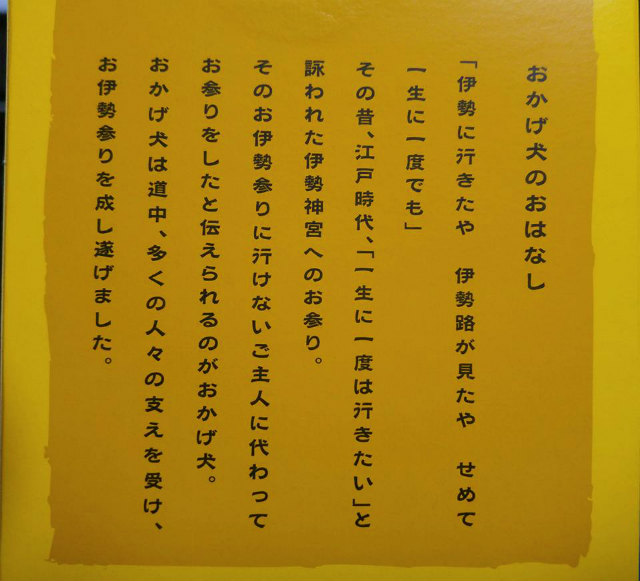 おかげ犬のおはなし
「伊勢に行きたや　伊勢路が見たや　せめて
一生に一度でも」
その昔、江戸時代、「一生に一度は行きたい」と
詠われた伊勢神宮へのお参り。
そのお伊勢参りに行けないご主人に代わって
お参りをしたと伝えられるのがおかげ犬。
おかげ犬は道中、多くの人々の支えを受け、
お伊勢参りを成し遂げました。